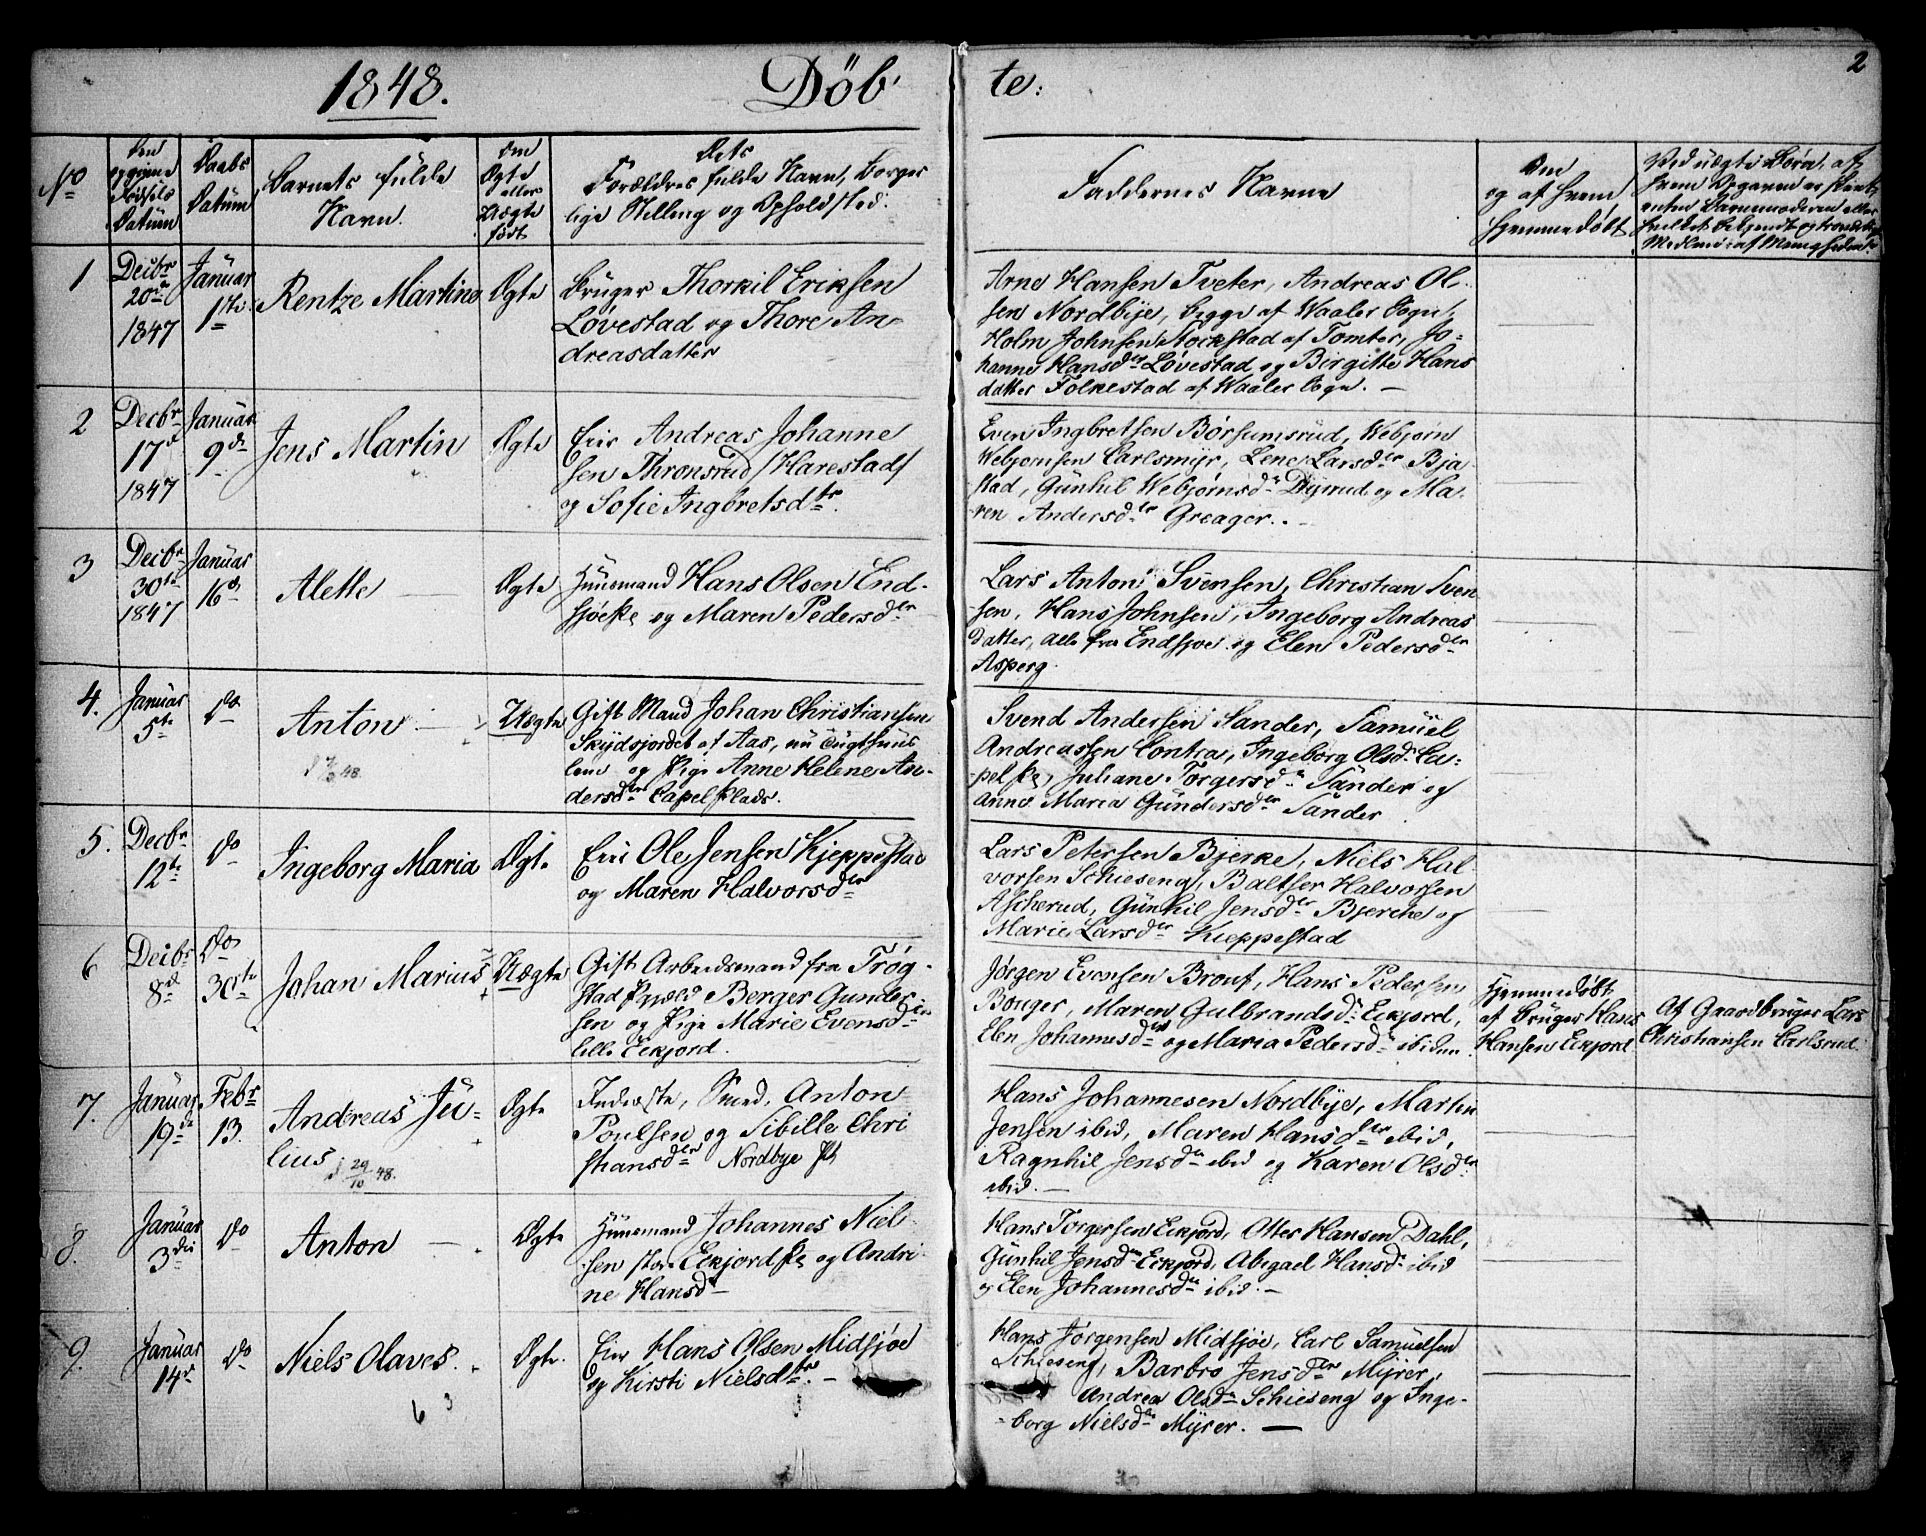 1848. Döb te: 2
No
Den opgivne Födsels Datum
Daabs Datum
Barnets fulde Navn.
Om Ægte eller Uægte født
Dets Forældres fulde Navn, Borgerlige Stilling og Opholdsted.
Faddernes Navne
Om og af hvem hjemmedøbt
Ved uægte Børn, af hvem
1
Decbr 20de 1847
Januar 1ste
Rentze Martine
Ægte
Bruger Thorkil Eriksen
Løvestad og Thore An=
dreasdatter
Arne Hansen Tveter, Andreas Ol-
sen Nordbye, begge af Waaler Sogn,
Holm Johnsen Stockstad af Tomter, Jo=
hanne Hansdr Løvestad og Birgitte Hans
datter Folkestad af Waaler Sogn. —
2
Decbr 17d 1847
Januar 9de
Jens Martin
Ægte
Eier Andreas Johanne
sen Thronsrud /Harestad/
og Sofie Ingbretsdtr.
Even Ingbretsen Børsumsrud, Webjørn
Webjørnsen Carlsmyr, Lene Larsdr Bja
stad, Gunhil Webjørnsdr Dyrud og Ma-
ren Andersdr Greager. -
3
Decbr 30te 1847
Januar 16d
Alette
Ægte
Huusmand Hans Olsen End-
sjøeske og Maren Pedersdr
Lars Anton Svensen, Christian Sven
sen, Hans Johnsen, Ingeborg Andreas
datter, alle fra Endsjøe og Elen Pedersdr
Asperg.
4.
Januar 5te
do
Anton
48.
Uægte
Gift Mand Johan Christiansen
Skydsjordet af Aas, nu Tugthuus
lem og Pige Anne Helene An-
dersdr Capelsplads.
Svend Andersen Sander, Samuel
Andreassen Contra, Ingeborg Olsdr Ca-
pelske, Juliane Torgersdr Sander og
Anne Maria Gundersdr Sander
5.
Decbr 12te
do
Ingeborg Maria
Ægte
Eier Ole Jensen Kjeppestad
og Maren Halvorsdr
Lars Petersen Bjerke, Niels Hal-
vorsen Schieseng, Baltser Halvorsen
Ascherud, Gunhil Jensdr Bjerche og
Marie Larsdr Kieppestad
6
Decbr 8d
do 30te
Johan Marius
Uægte
Gift Arbeidsmand fra Trøg-
stad Berger Gunder-
sen og Pige Marie Evensdr
lille Eckjord.
Jørgen Evensen Brout, Hans Pedersen
Bonger, Maren Gulbrandsdr Eckjord,
Elen Johannesdr og Maria Pedersdr ibidem.
Hjemmedøbt
af Bruger Hans
Hansen Eckjord
Af Gaardbruger Lars
Christiansen Carlsrud.
7.
Januar 19de
Febr 13.
Andreas Ju-
lius
29/10 48.
Ægte
Inderste, Smed, Anton
Poulsen og Sibille Chri
stiansdr Nordbye
Hans Johannesen Nordbye, Martin
Jensen ibid, Maren Hansdr ibid,
Ragnhil Jensdr ibid og Karen Olsdr
ibid. —
8.
Januar 3die
do
Anton
Ægte
Huusmand Johannes Niel-
sen store Eckjordske og Andri-
ne Hansdr
Hans Torgersen Eckjord, Otter Hansen Dahl,
Gunhil Jensdr Eckjord, Abigael Hansdr ibid
og Elen Johannesdr ibid. —
9.
Januar 14d
do
Niels Olaves.
6 3
Ægte.
Eier Hans Olsen Midsjøe
og Kirsti Nielsdtr. —
Hans Jørgensen Midsjøe, Carl Samuelsen
Schieseng, Barbro Jensdr Myrer,
Andrea Olsdr Schieseng og Inge-
borg Nielsdr Myrer. —